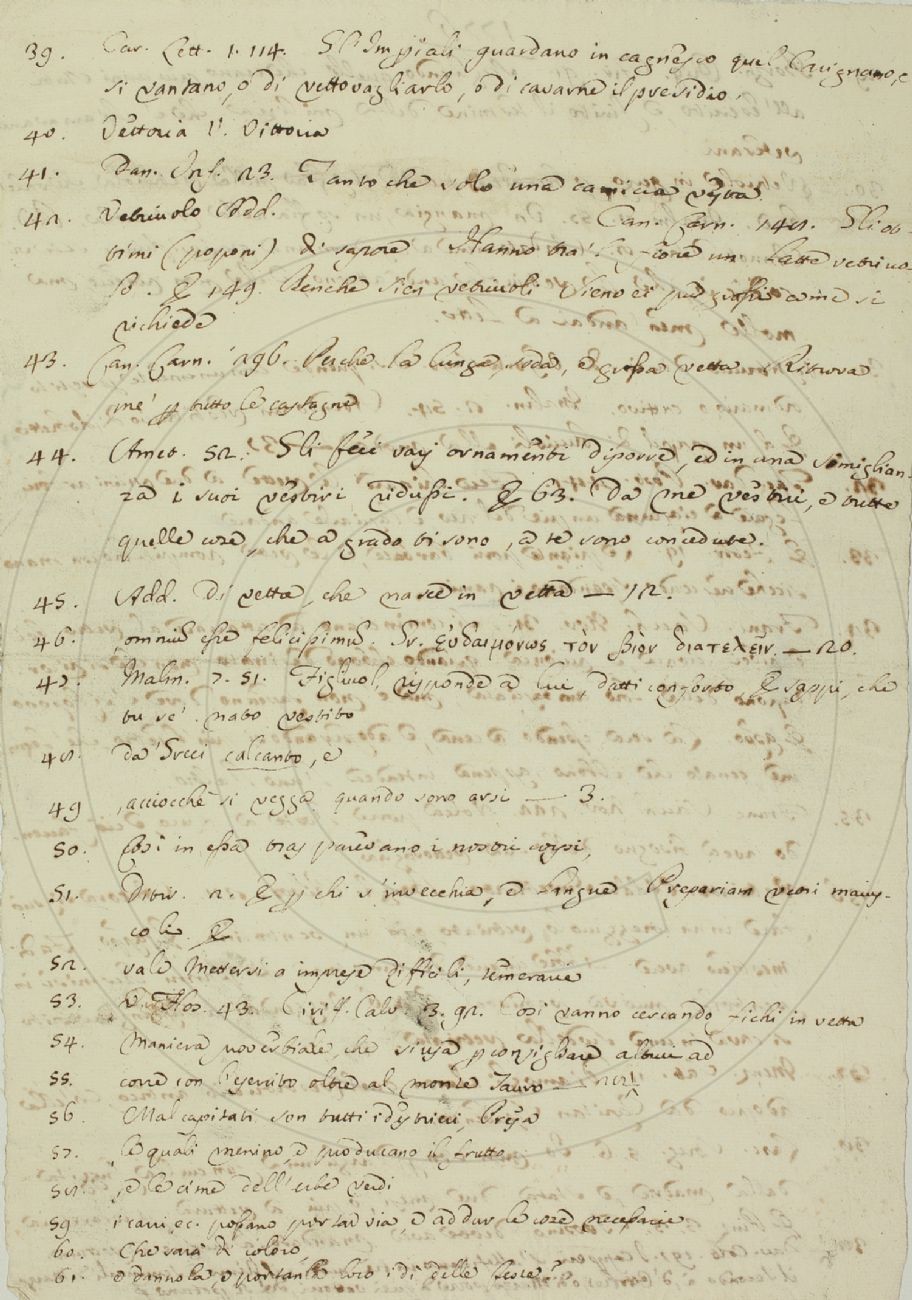 39. Car. Lett. 1. 114. Gl' Impiali guardano in cagnesco quel Cavignano, e
si vantano, o di vettovagliarlo, o di cavarne il presidio.
40. Vettoria V. Vittoria
41. Dan. Inf. 23. Tanto che solo una camicia vesta
42. Vetriuolo Add. Can. Carn. 148. Gli ot-
timi (poponi) di sapore Hanno un latte vetriuo-
lo. E 149. Benchè sien vetriuoli
richiede
43. Can. Carn. 296. Perchè la lunga, soda, e grossa vetta Ritrova
me' p tutto le castagne
44. Amet. 52. Gli feci varj ornamenti diporre, ed in una somiglian-
za i suoi vestiri ridussi. E 63. Da me vestiri, e tutte
quelle cose, che a grado ti sono, a te sono concedute.
45. Add. Di vetta, che nasce in vetta — 12.
46. omniu esse felicissimu. Gr. εὐδαιμόνως τὸν βίον διατελεῖν. — 20.
47. Malm. 7. 51. Figliuol, risponde a lui, datti conforto, E sappi, che
tu se' nato vestito
48. da' Greci calcanto, e
49 acciocchè si vegga quando sono arsi — 3.
50. Così in essa trasparevano i nostri corpi,
51. Dittir. 2. E p chi s' invecchia, e langue Prepariam vetri maius-
coli E
52. vale Mettersi a imprese difficili, temerarie
53. V. Flos. 43. Ciriff. Calv. 3. 92. Così vanno cercando fichi in vetta
54. Maniera proverbiale, che s'usa p consigliare altrui ad
55. corre con l'esercito oltre al monte Tauro —
56 Mal capitati son tutti i destrieri, Presa
57. le quali menino, e producano il frutto
58. e le cime dell'erbe verdi
59 i carri ec. possano portar via, e addur le cose necessarie
60. Che varia di coloro,
61. e dannola e portanla loro